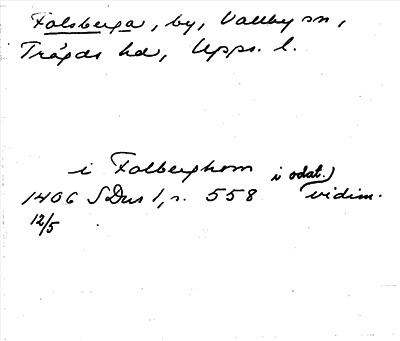 Falsberga, by, Vallby sn,
Trögds hd, Upps. l.
i Falberghom i odat.)
1406 SDns 1, s. 558 vidim.
12/5